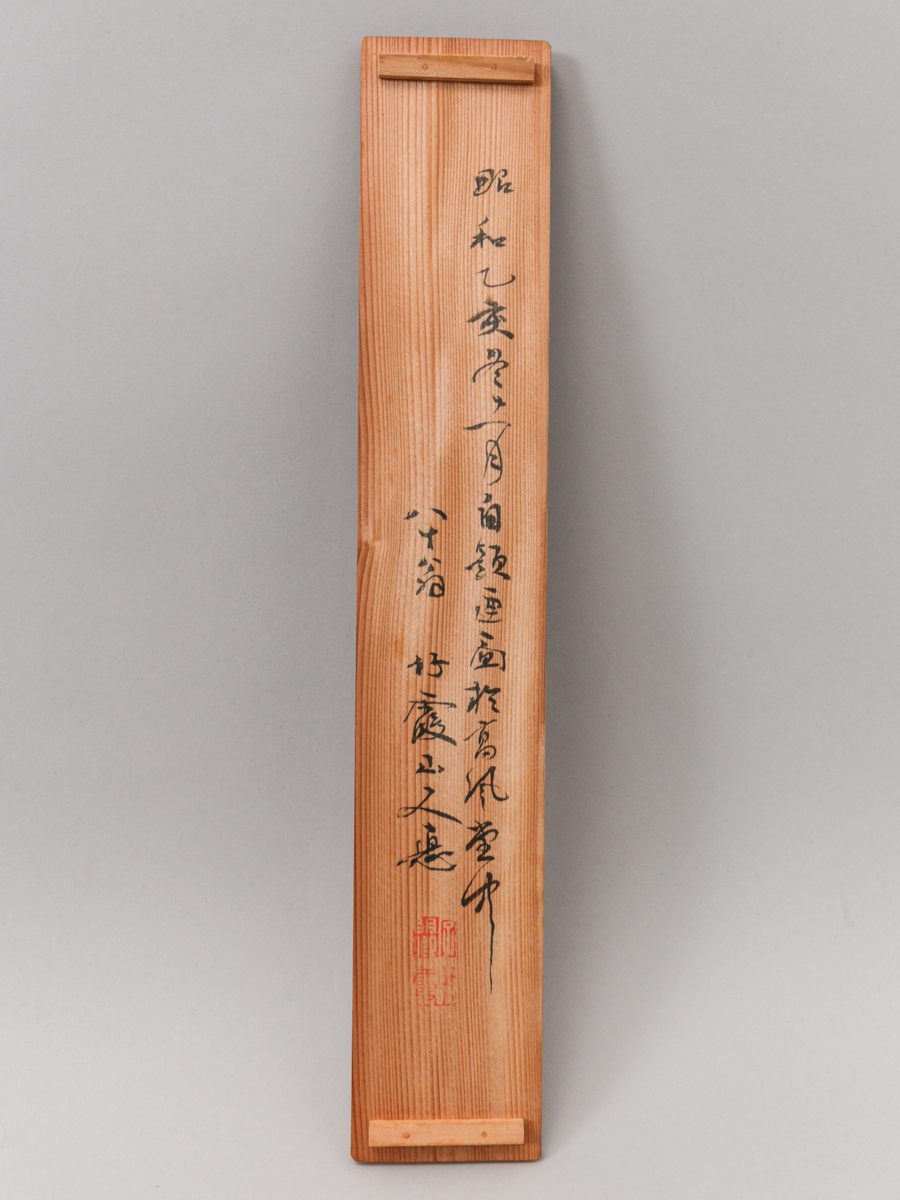 昭和乙亥冬十一月自題画図於高風堂中
八十翁 竹霞山人